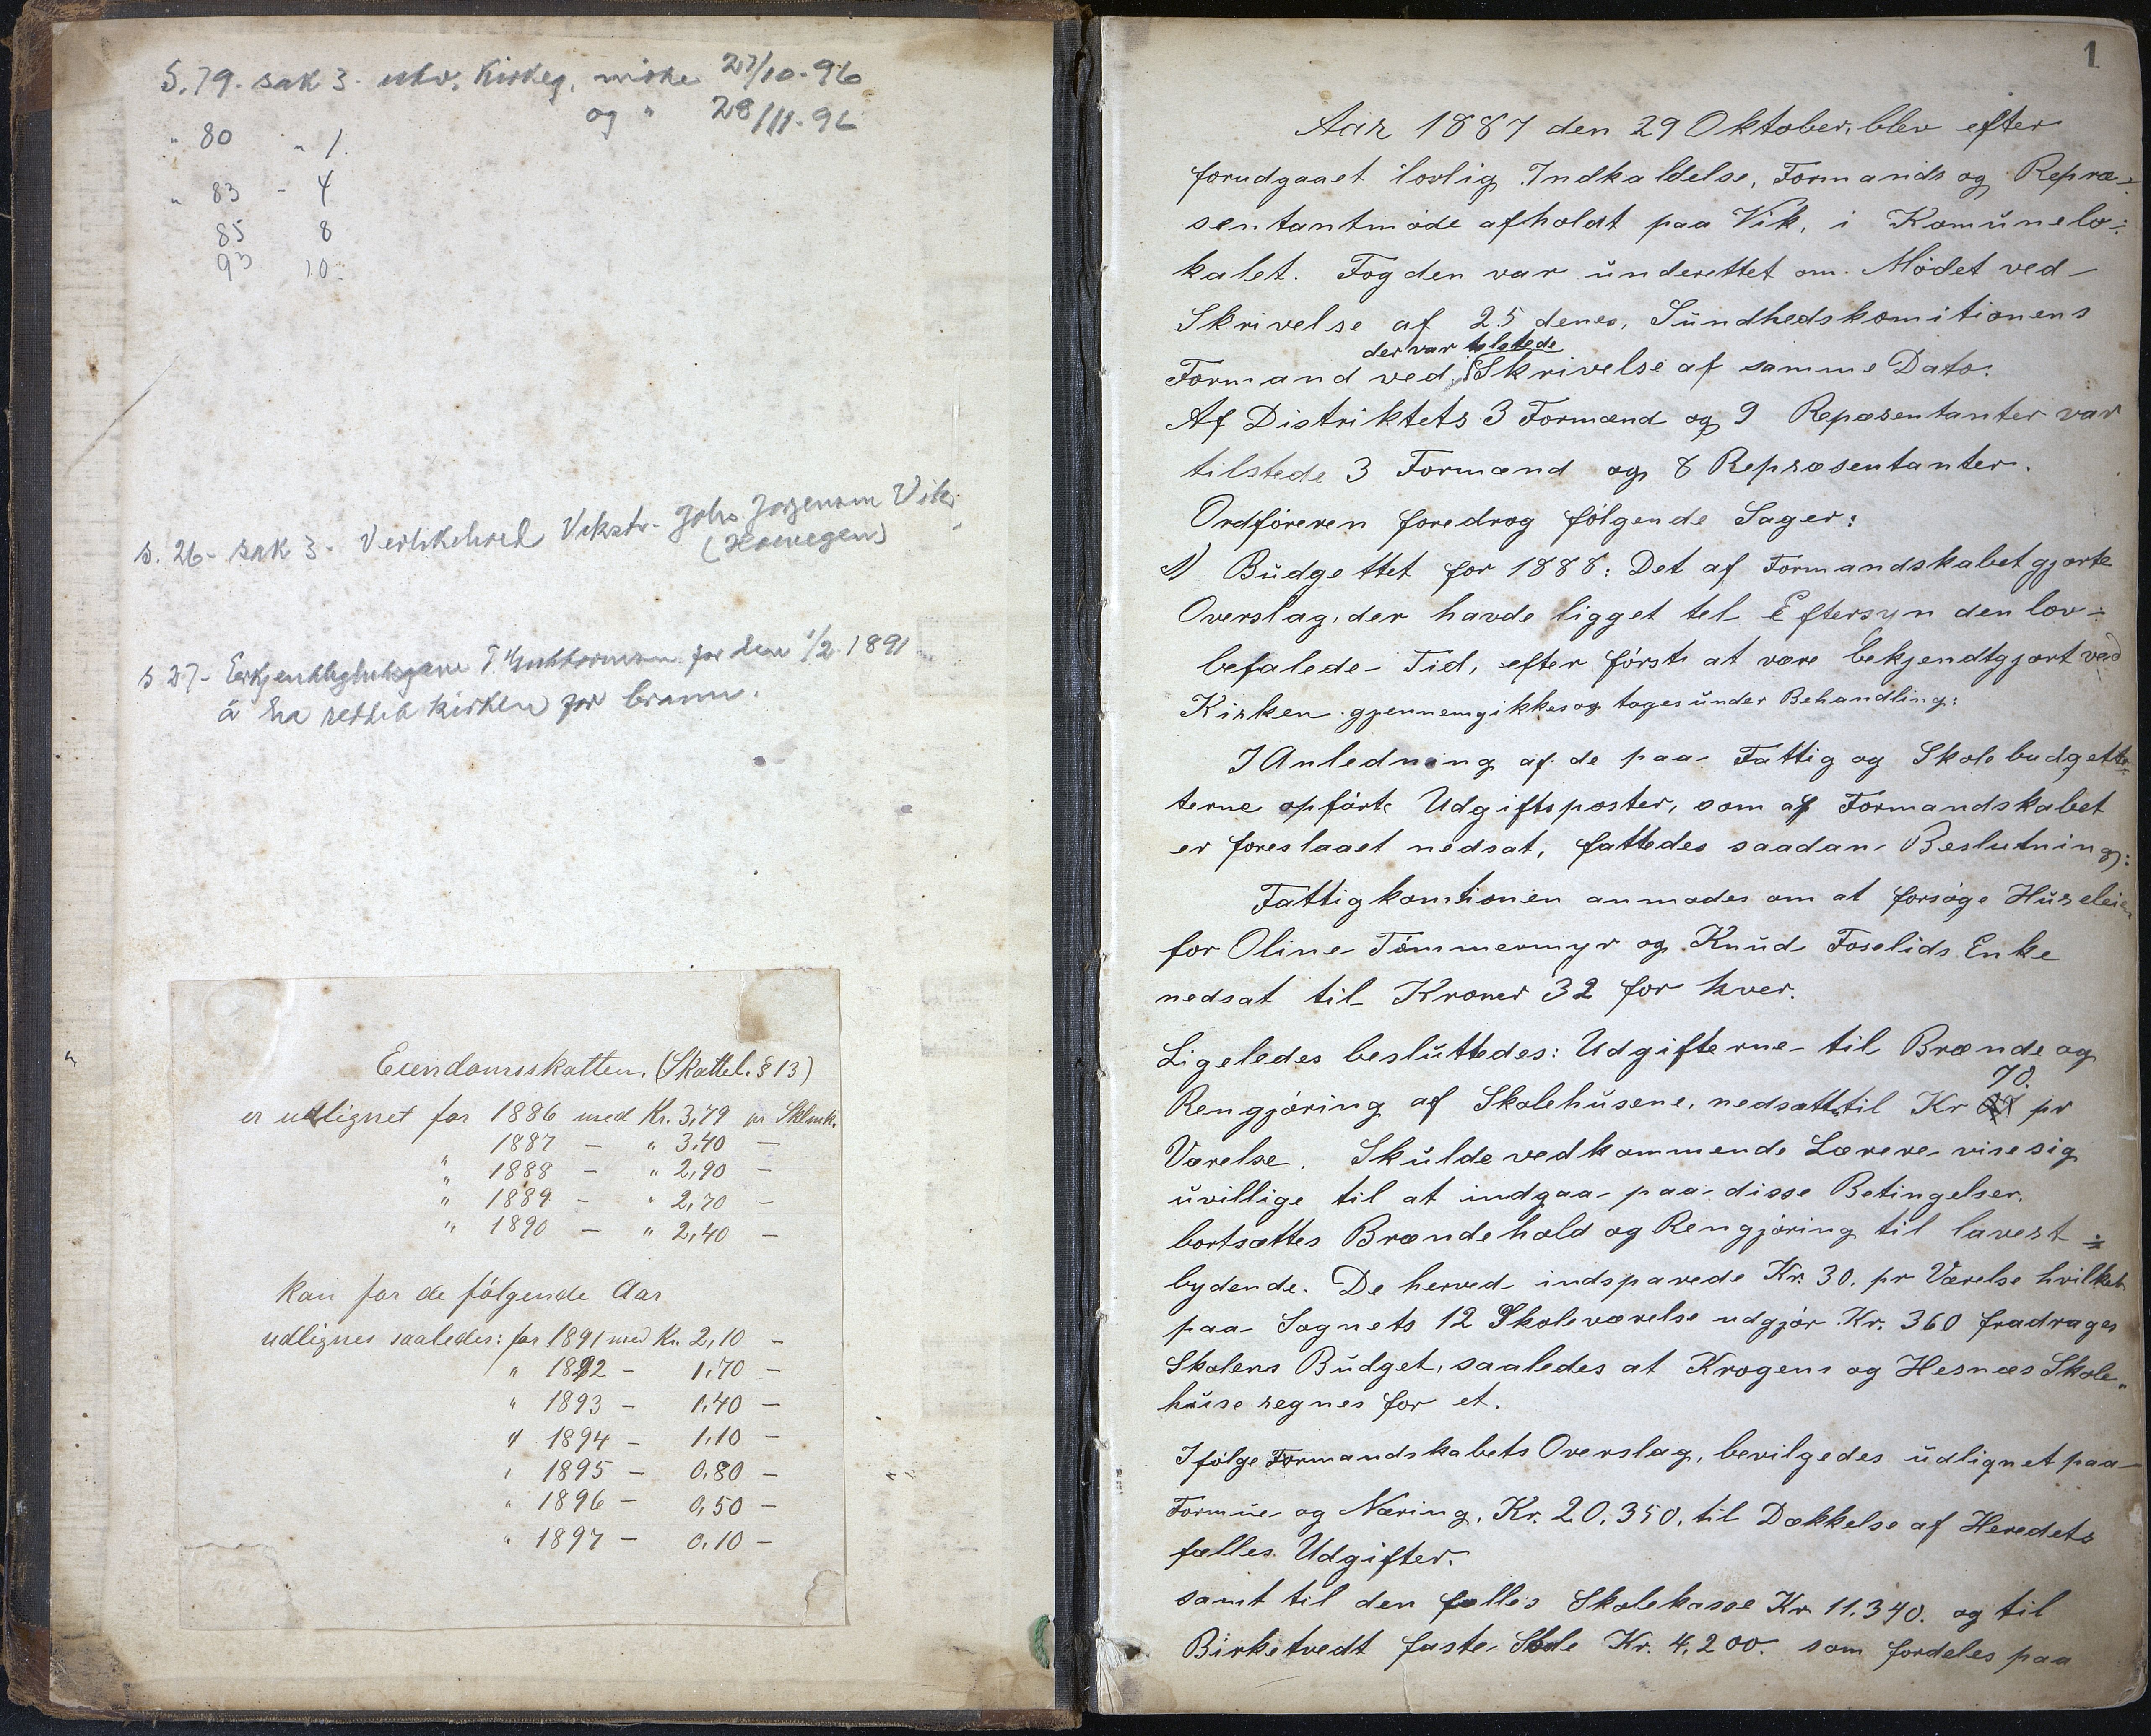 S. 79. sak 3. utv. Kirkeg. møte 27/10-96
og " 28/11-96
" 80 " 1.
" 83 - 4
85 8
93 10.
s. 26- sak 3. Vekstr. Johs. Jørgensen Vik
(Norwegen)
s 27- T. Guttormsen for den 1/2 1891
å ha reddet kirken for brann.
Eiendomsskatten. (Skattel. § 13)
er udlignet for 1886 med Kr. 3,79 pr Sklmk.
" 1887 — " 3,40 —
" 1888 — " 2,90 —
" 1889 - " 2,70 —
" 1890 — " 2,40 —
kan for de følgende Aar
udlignes saaledes: for 1891 med Kr. 2,10 —
" 1892 — 1,70 —
" 1893 — 1,40 —
" 1894 — 1,10 —
" 1895 — 0,80 —
" 1896 — 0,50 —
" 1897 — 0,10 —
1
Aar 1887 den 29 Oktober, blev efter
forudgaaet lovlig Indkaldelse, Formands og Repræ-
sentantmøde afholdt paa Vik, i Komunelo-
kalet. Fogden var underettet om Mødet ved
Skrivelse af 25 denes, Sundhedskomitionens
der var tilstede
Formand ved Skrivelse af samme Dato.
Af Distriktets 3 Formænd og 9 Repæsentanter var
tilstede 3 Formænd og 8 Repræsentanter.
Ordføreren foredrog følgende Sager:
1) Budgettet for 1888: Det af Formandskabet gjorte
Overslag, der havde ligget tel Eftersyn den lov-
befalede Tid, efter først at være bekjendtgjort ved
Kirken gjennemgikkes og toges under Behandling:
I Anledning af de paa Fattig og Skolebudgette-
terne opførte Udgiftsposter, som af Formandskabet
er foreslaaet nedsat, fattedes saadan Beslutning:
Fattigkomtionen anmodes om at forsøge Husleien
for Oline Tømmermyr og Knud Foselids Enke
nedsat til Kroner 32 for hver.
Ligeledes besluttedes: Udgifterne til Brænde og
70.
Rengjøring af Skolehusene, nedsættes til Kr pr
Værelse. Skulde vedkommende Lærere vise sig
uvillige til at indgaa paa disse Betingelser,
bortsættes Brændehold og Rengjøring til lavest-
bydende. De herved indsparede Kr. 30. pr Værelse hvilket
paa Sognets 12 Skoleværelse udgjør Kr. 360 fradrages
Skolens Budget, saaledes at Krogens og Hesnæs Skole-
huse regnes for et.
Ifølge Formandskabets Overslag, bevilgedes udlignet paa
Formue og Næring, Kr. 20,350, til Dækkelse af Heredets
fælles Udgifter.
samt til den fælles Skolekasse Kr. 11.340. og til
Birketvedt faste Skole Kr. 4,200. som fordeles paa